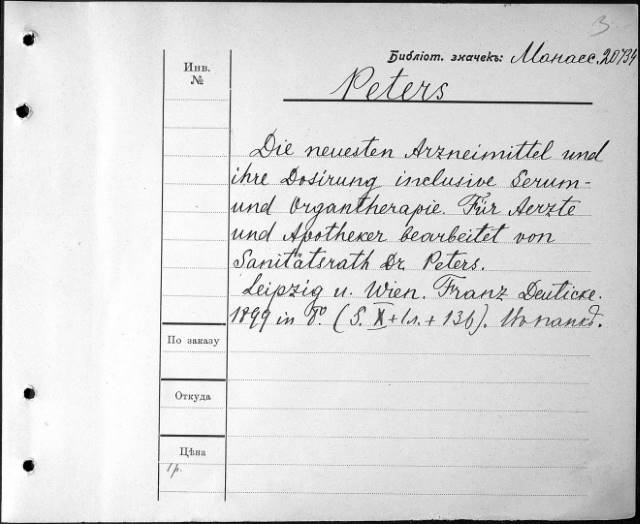 3
Библіот. значекъ: Манасс. 20734
Инв.
№
Peters
Die neuesten Arzneimittel und
ihre Dosirung inclusive Serum-
und Organtherapie. Für Aerzte
und Apotheker bearbeitet von
Sanitätsrath Dr. Peters.
Leipzig u. Wien. Franz Deuticke.
1899 in 8°. (S. X + 1 л. + 136).
По заказу
Откуда
Цѣна
1 р.